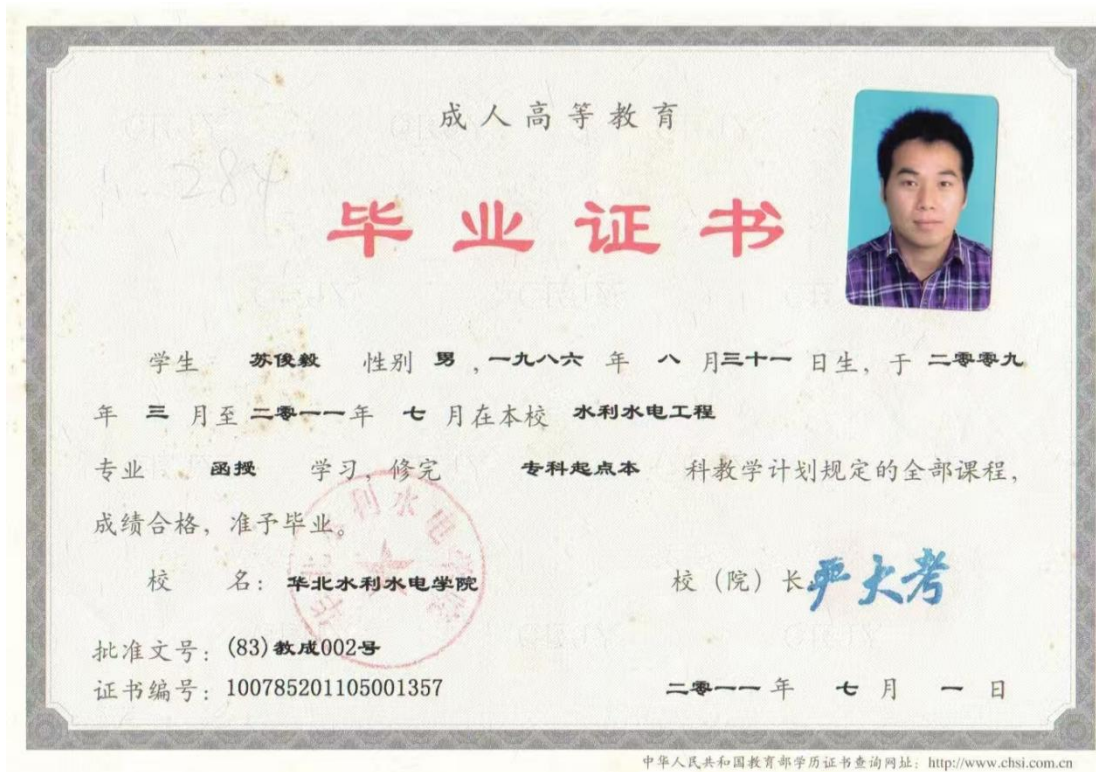 成人高等教育
毕业证书
学生 苏俊毅 性别 男 ，一九八六 年 八 月三十一 日生，于 二零零九
年 三 月至 二零一一年 七 月在本校 水利水电工程
专业 函授 学习，修完 专科起点本 科教学计划规定的全部课程，
成绩合格，准予毕业。
校 名：华北水利水电学院 校（院）长 严大考
华北水利水电学院
批准文号：(83)教成002号
证书编号：100785201105001357 二零一一 年 七 月 一 日
中华人民共和国教育部学历证书查询网址：http://www.chsi.com.cn